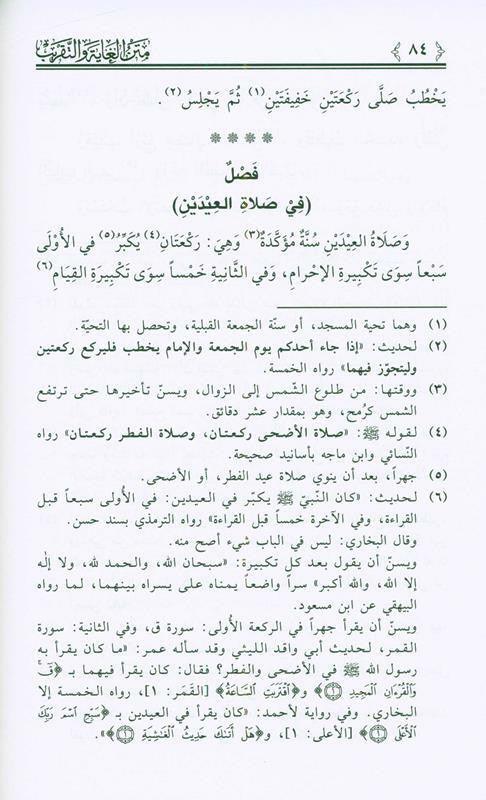 ﴿ ٨٤ ﴾ متن الغاية والتقريب
يَخْطُبُ صَلَّى رَكْعَتَيْنِ خَفِيفَتَيْنِ(١) ثُمَّ يَجْلِسُ(٢).
* * * *
فَصْلٌ
(فِيْ صَلاَةِ العِيْدَيْنِ)
وَصَلَاةُ العِيْدَيْنِ سُنَّةٌ مُؤَكَّدَةٌ(٣) وَهِيَ: رَكْعَتَانِ(٤) يُكَبِّرُ(٥) في الأُوْلَى
سَبْعاً سِوَى تَكْبِيرةِ الإحْرامِ، وَفي الثَّانِيَةِ خَمْساً سِوَى تَكْبِيرَةِ القِيَامِ(٦)
(١) وهما تحية المسجد، أو سنّة الجمعة القبلية، وتحصل بها التحيّة.
(٢) لحديث: «إذا جاء أحدكم يوم الجمعة والإمام يخطب فليركع ركعتين
وليتجوّز فيهما» رواه الخمسة.
(٣) ووقتها: من طلوع الشّمس إلى الزوال، ويسنّ تأخيرها حتى ترتفع
الشمس كرُمح، وهو بمقدار عشر دقائق.
(٤) لقوله ﷺ: «صلاة الأضحى ركعتان، وصلاة الفطر ركعتان» رواه
النّسائي وابن ماجه بأسانيد صحيحة.
(٥) جهراً، بعد أن ينوي صلاة عيد الفطر، أو الأضحى.
(٦) لحديث: «كان النّبيّ ﷺ يكبّر في العيدين: في الأُولى سبعاً قبل
القراءة، وفي الآخرة خمساً قبل القراءة» رواه الترمذي بسند حسن.
وقال البخاري: ليس في الباب شيء أصح منه.
ويسنّ أن يقول بعد كل تكبيرة: «سبحان الله، والحمد لله، ولا إلٰه
إلا الله، والله أكبر» سراً واضعاً يمناه على يسراه بينهما، لما رواه
البيهقي عن ابن مسعود.
ويسنّ أن يقرأ جهراً في الركعة الأُولى: سورة ق، وفي الثانية: سورة
القمر، لحديث أبي واقد الليثي وقد سأله عمر: «ما كان يقرأ به
رسول الله ﷺ في الأضحى والفطر؟ فقال: كان يقرأ فيهما بـ ﴿قٓ
وَالْقُرْءَانِ الْمَجِيدِ ١﴾ و﴿اقْتَرَبَتِ السَّاعَةُ﴾ [القَمَر: ١]، رواه الخمسة إلا
البخاري. وفي رواية لأحمد: «كان يقرأ في العيدين بـ ﴿سَبِّحِ اسْمَ رَبِّكَ
الْأَعْلَى ١﴾ [الأعلى: ١]، و﴿هَلْ أَتَىٰكَ حَدِيثُ الْغَٰشِيَةِ ١﴾».